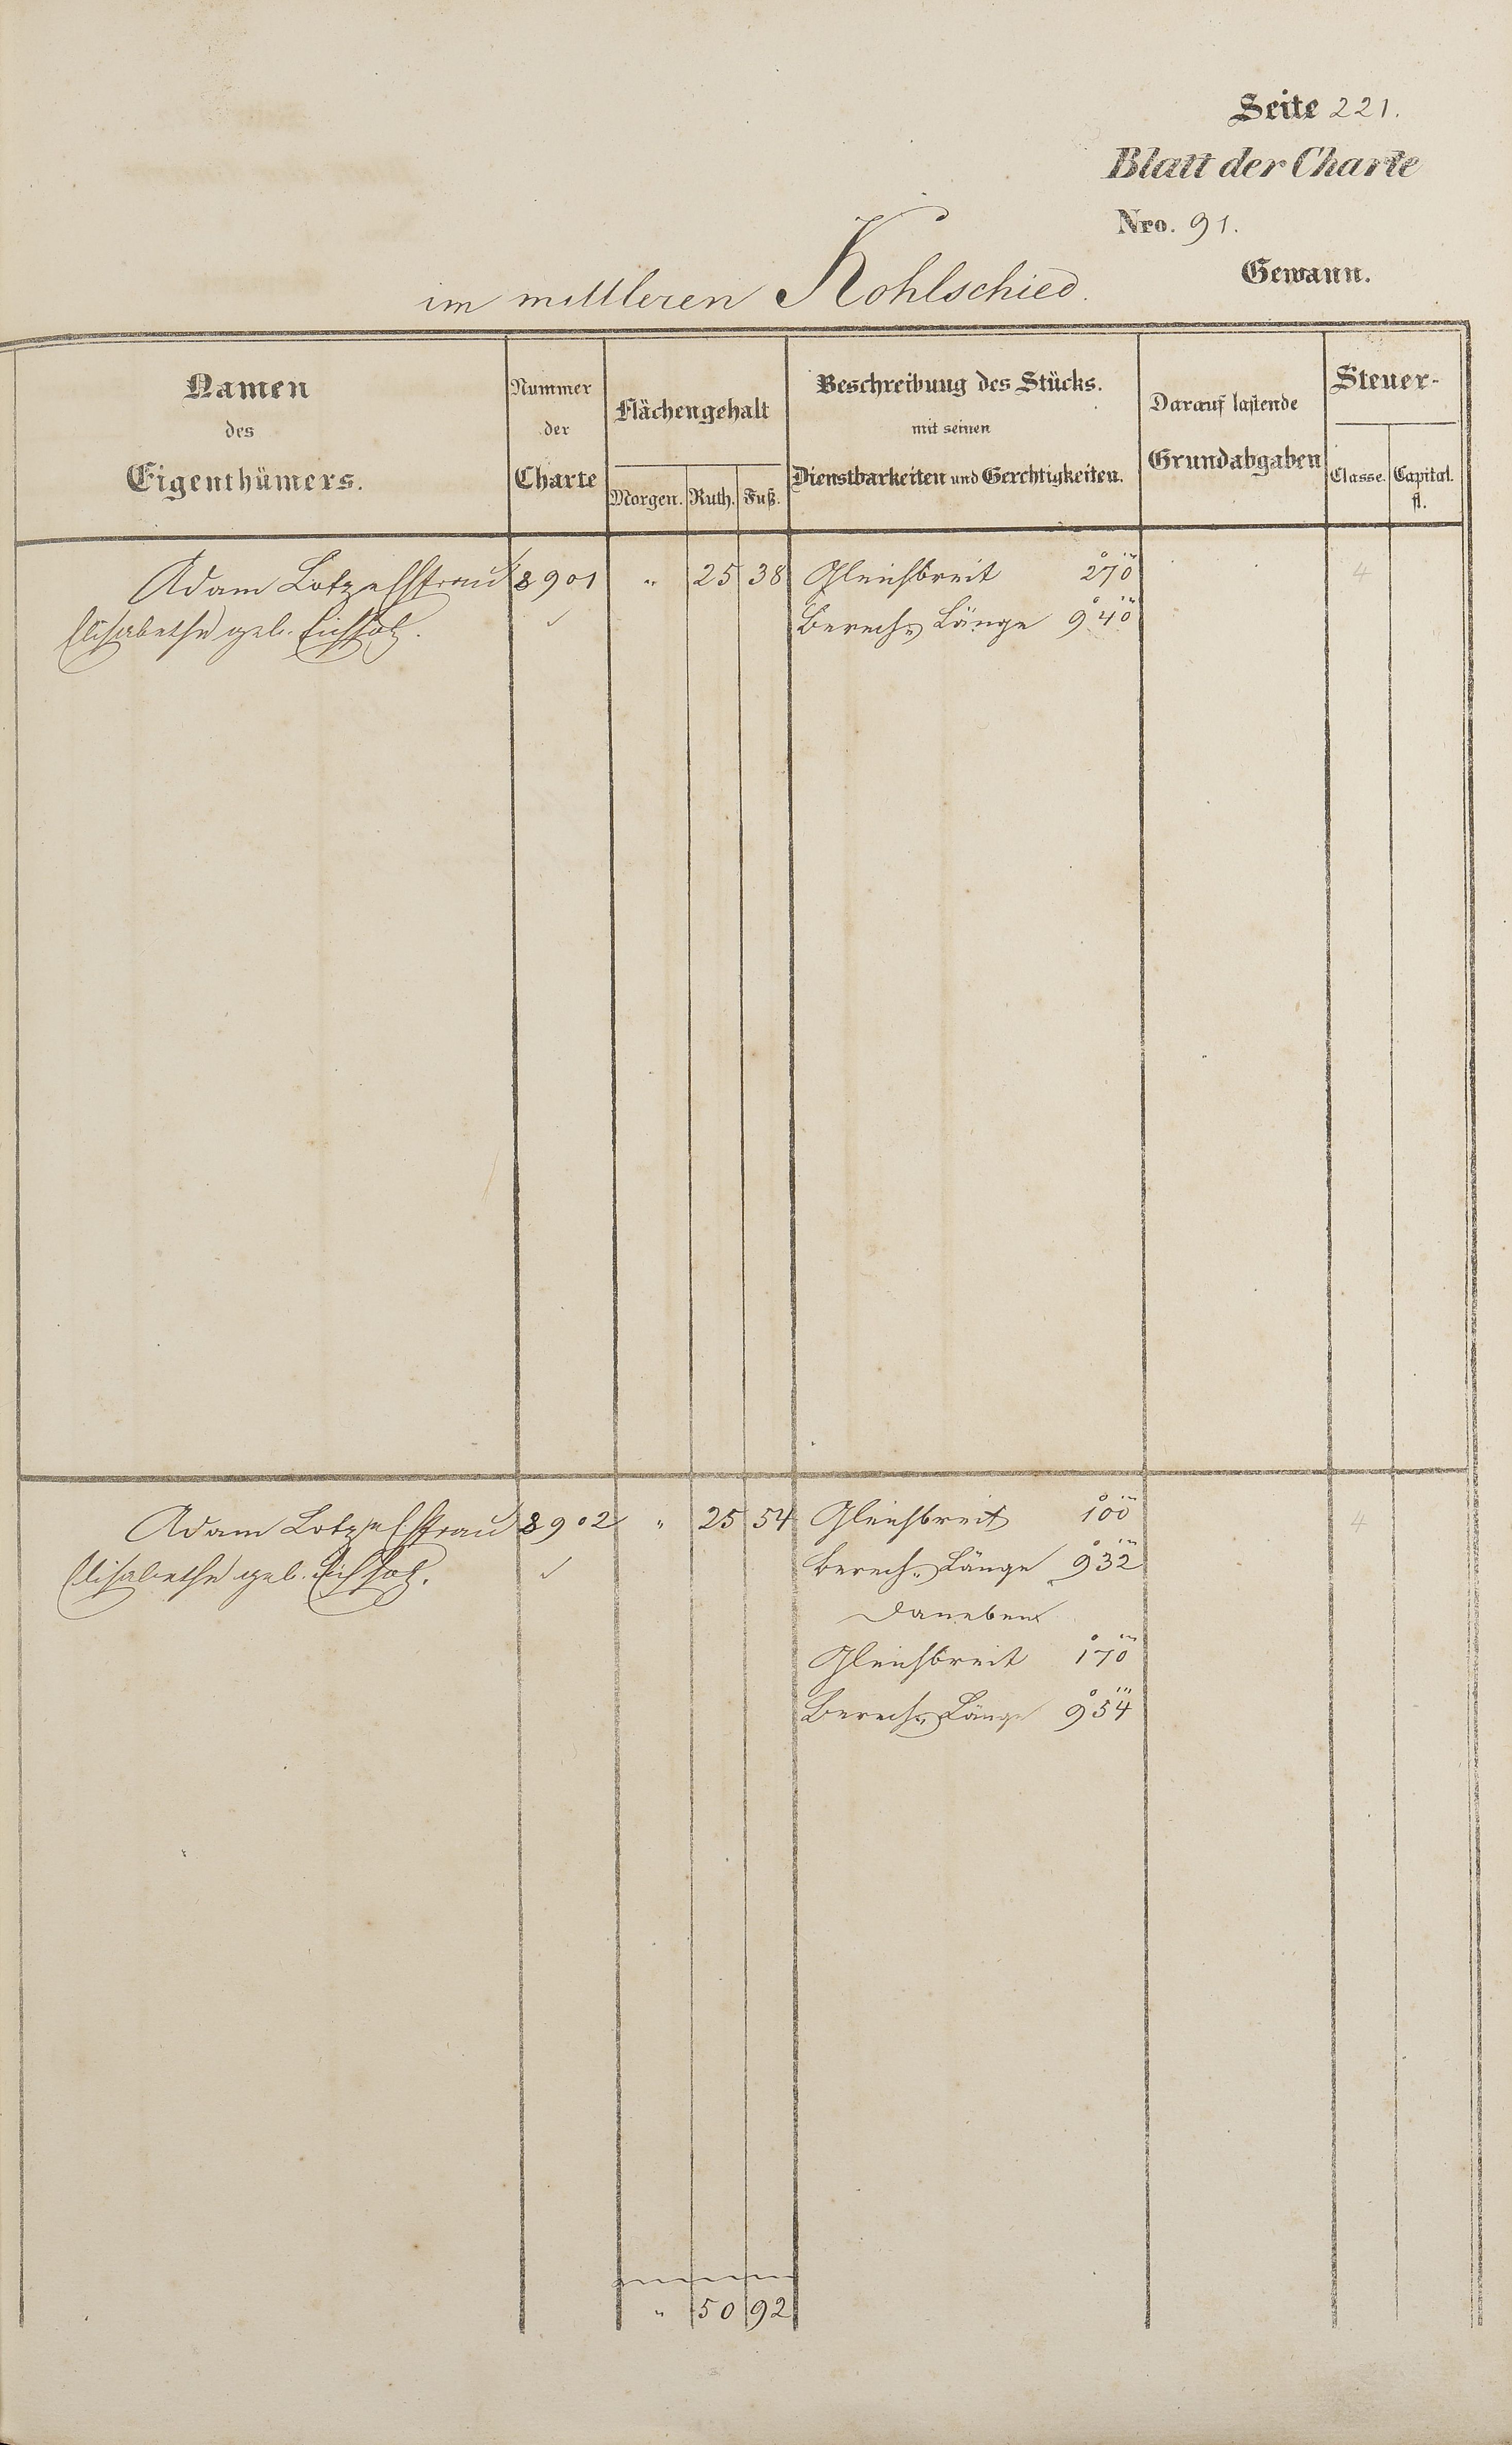 Seite 221.
Blatt der Charte
Nro. 91.
im mittleren Kohlschied. Gewann.
Namen
des
Eigenthümers.
Nummer
der
Charte
Flächengehalt
Morgen. Ruth. Fuß.
Beschreibung des Stücks.
mit seinen
Dienstbarkeiten und Gerechtigkeiten.
Darauf lastende
Grundabgaben
Steuer-
Classe. Capital.
fl.
Adam Lotz Ehefrau 8901 " 25 38 Gleichbreit 270 4
Elisabethe geb. Eichholz. Berech. Länge 940
Adam Lotz Ehefrau 8902 " 25 54 Gleichbreit 100 4
Elisabethe geb. Eichholz. Berech. Länge 932
Daneben
Gleichbreit 170
Berech. Länge 954
" 50 92